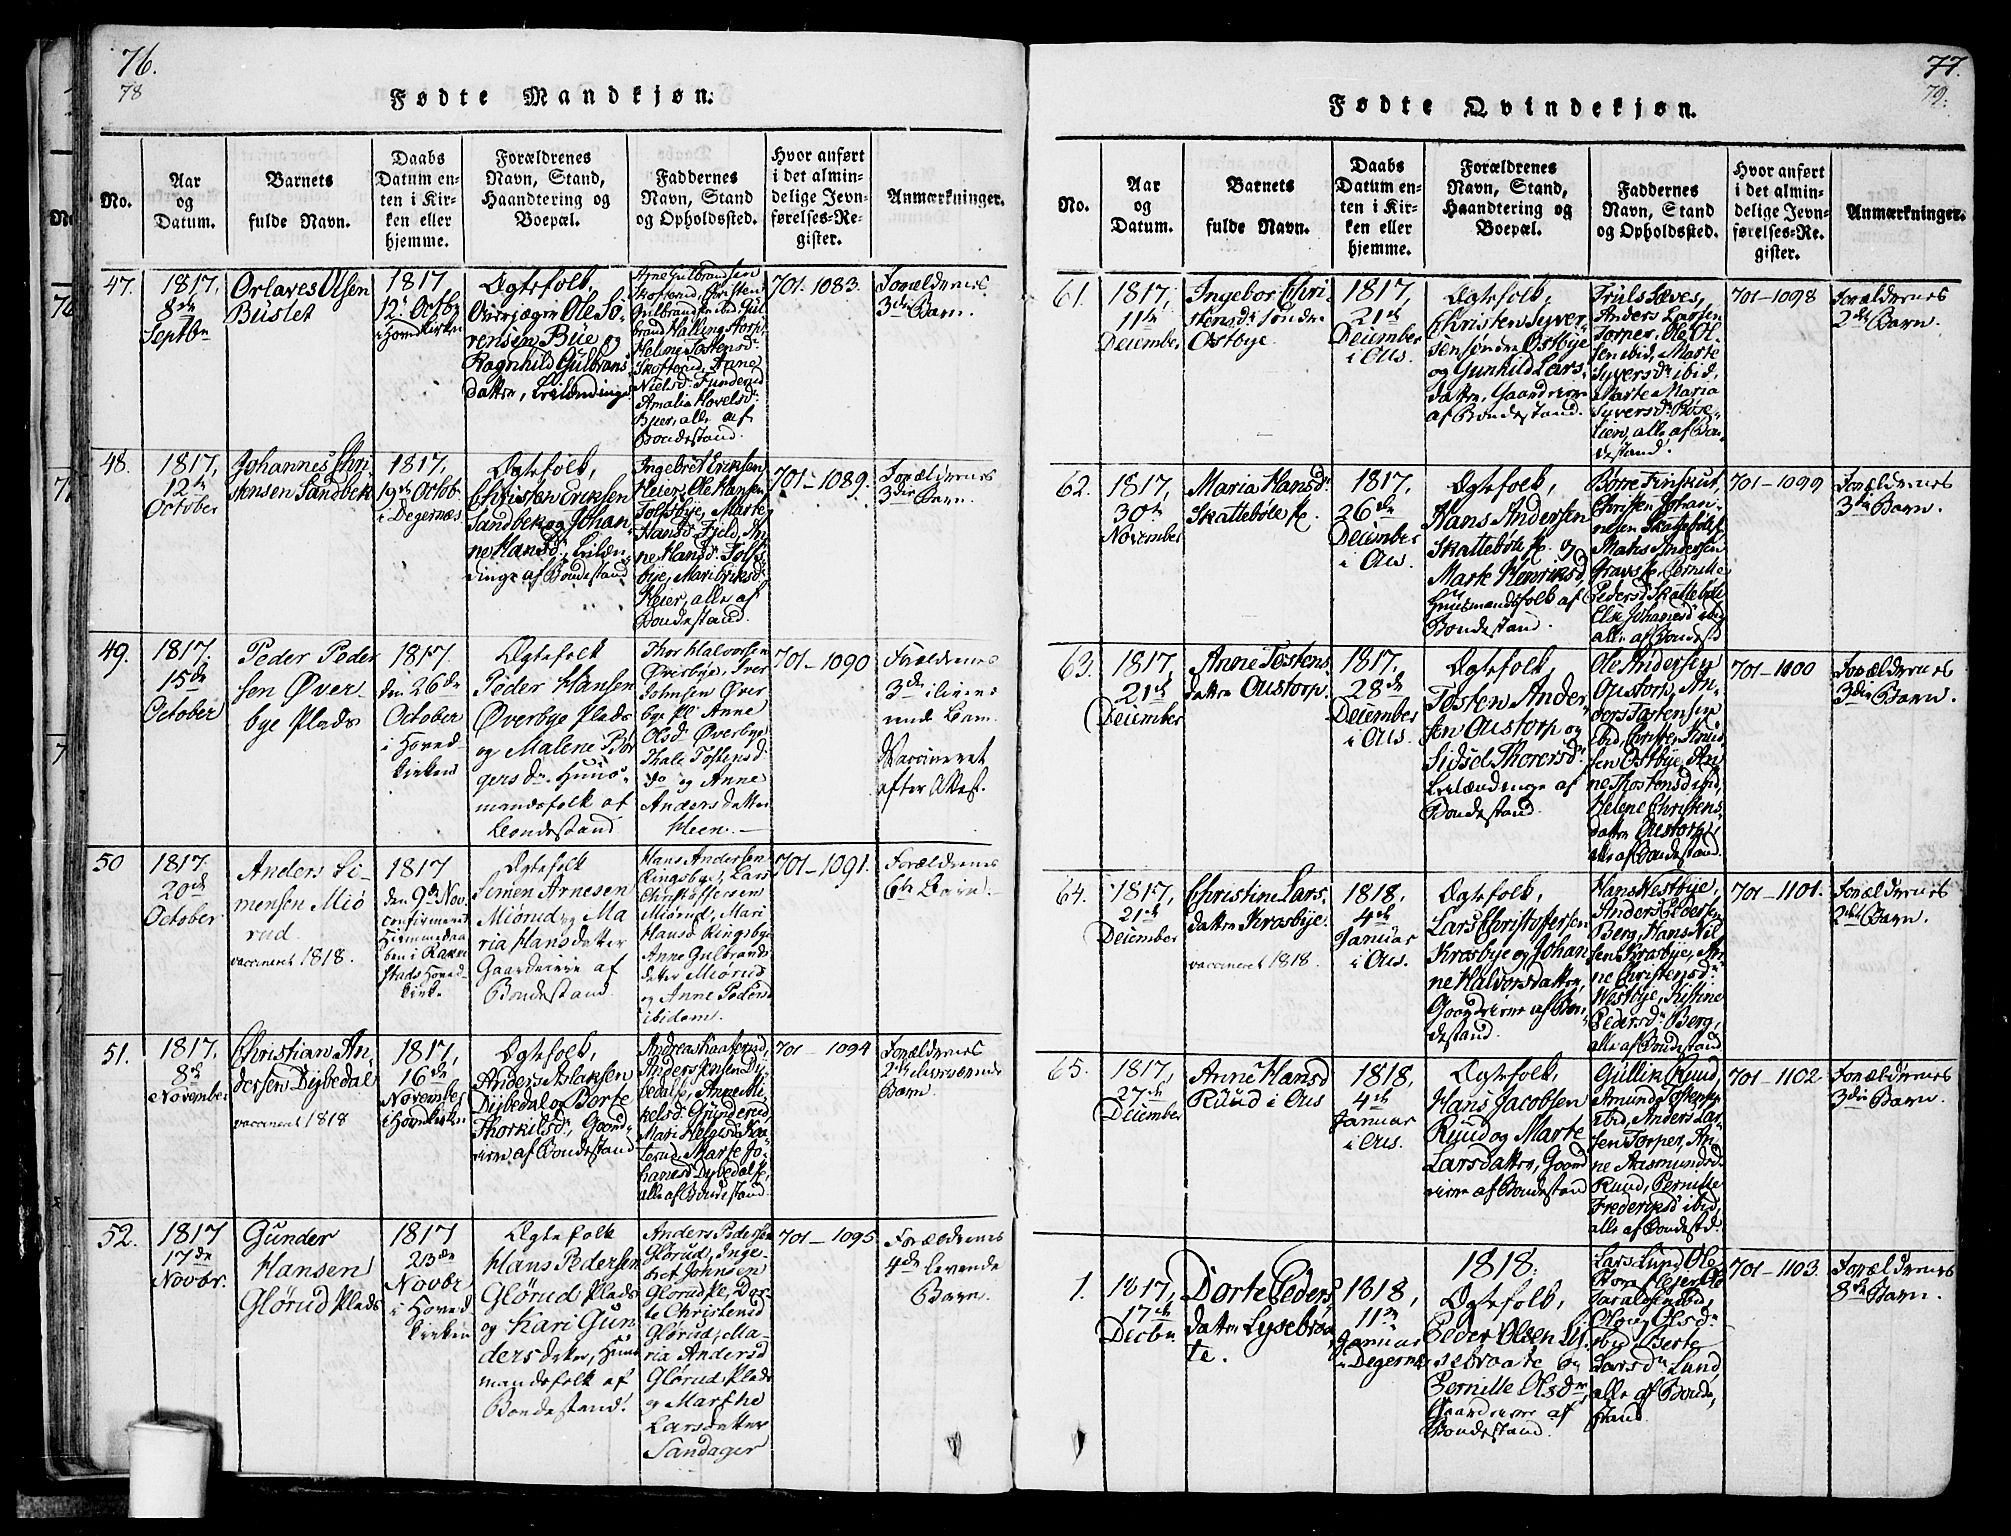 76.
78
Fødte Mandkjøn.
No.
Aar
og
Datum.
Barnets
fulde Navn.
Daabs
Datum en-
ten i Kir-
ken eller
hjemme.
Forældrenes
Navn, Stand,
Haandtering og
Boepæl.
Faddernes
Navn, Stand
og Opholdssted.
Hvor anført
i det almin-
delige Jevn-
førelses-Re-
gister.
Anmærkninger.
47.
1817,
8de
Septbr
Orlaves Olsen
Buslet
1817
12t Octbr
i Hovedkirken
Ægtefolk,
Ole So-
rensen Büe og
Ragnhild Gulbrans-
datter,
Arne Gulbrandsen
Skofterud, Christen
Gulbrandsen ibid. Gul
brand Kallingstorp,
Helene Tostensdr
Skofterud, Anne
Nielsdr
Amalia Hovelsdr
alle af
Bondestand.
701-1083.
Forældrenes
3die Barn.
48.
1817,
12te
October
Johannes Chri-
stensen Sandbek
1817,
19de Octob.
i Degernes
Ægtefolk,
Christen Eriksen
Sandbek og Johan-
ne Hansdr, Leilæn-
dinge af Bondestand
Ingebret Eriksen
Heier, Ole Hansen
Folksbye, Marte
Hansdr Fjeld, An-
ne Hansdr Folks-
bye, Mari Eriksdr
Heier, alle af
Bondestand.
701-1089.
Forældrenes
3die Barn.
49.
1817.
15de
October
Peder Peder
sen Øver
bye Plads
1817
den 26de
October
i Hoved-
kirken
Ægtefolk
Peder Hansen
Øverbye Plads
og Malene Bør
gersdr Huus-
mandsfolk af
Bondestand
Thor Halvorsen
Øverbye, Iver
Johnsen Øver
bye Pl Anne
Olsdr Øverbye
Thale Tostensd
do og Anne
Anders datter
Heen.
701-1090
Forældrenes
3de ilivevæ-
rende Barn.
Vaccineret
efter Attest.
50
1817.
20de
October
Anders Si-
mensen Miø
rud.
vaccineret 1818.
1817
den 9de Nov.
confirmeret
Hiemmedaa
ben i Rakke
stads Hoved-
kirke
Ægtefolk
Simen Arnesen
Miørud og Ma
ria Hansdatter
Gaardeiere af
Bondestand
Hans Andersen
Ringsbye, Lars
Christoffersen
Miørud, Mari
Hansd Ringsbye
Anne Gulbrands
datter Miørud
og Anne Pedersd
ibidem.
701-1091.
Forældrenes
6te Barn.
51.
1817,
8de
November
Christian An
dersen Dybedal
vaccineret 1818
1817,
16de
November
i Hovedkirken
Ægtefolk,
Anders Aslaksen
Dybedal og Borte
Thorkilsdr, Gaard-
eiere af Bondestand
Andreas Kaaterud,
Anders Iversen Dy
bedal, Anne Mi
kelsdr Gunderud
Mari Helgesd Kaa
terud, Marte Jo
hannesd Dybedal,
alle af Bondestand.
701-1094
Forældrenes
2det ilivværende
Barn.
52.
1817
17de
Novbr.
Gunder
Hansen
Glørud Plads
1817
23de
Novbr
i Hoved
kirken
Ægtefolk
Hans Pedersen
Glørud Plads
og Kari Gun
dersdatter, Huus
mandsfolk af
Bondestand.
Anders Pedersen
Glørud, Inge-
bret Johnsen
Glørud Pl, Dor-
te Christensd
Glørud, Ma-
ria Andersd
Glørud Plads
og Marthe
Larsdatter
Sandager
701-1095
Forældrenes
4de levende
Barn.
77.
79.
Fødte Qvindekjøn.
No.
Aar
og
Datum.
Barnets
fulde Navn.
Daabs
Datum en-
ten i Kir-
ken eller
hjemme.
Forældrenes
Navn, Stand,
Haandtering og
Boepæl.
Faddernes
Navn, Stand
og Opholdssted.
Hvor anført
i det almin-
delige Jevn-
førelses-Re-
gister.
Anmærkninger.
61.
1817,
11te
December
Ingebor Chri-
stensdr søndre
Østbye.
1817,
21de
December
i Øus.
Ægtefolk,
Christen Syver
sen søndre Østbye
og Gunhild Lars-
datter, Gaardeiere
af Bondestand.
Truls Læves,
Anders Larsen
Torper, Ole Ol-
sen ibid, Marte
Syversdr ibid,
Marte Maria
Syversdr Røse-
lien, alle af Bon-
destand.
701-1098
Forældrenes
2det Barn.
62.
1817,
30te
November
Maria Hansdr
Skattebøle
1817,
26de
December
i Øus.
Ægtefolk,
Hans Andersen
Skattebøle og
Marte Henriksdr
Huusmandsfolk af
Bondestand.
Børre Finskut,
Christen Johan-
nesen Skattebøl,
Mats Andersen
Pernille
Pedersd Skattebøle
Else Johannesd ibid
alle af Bondestd
701-1099
Forældrenes
3die Barn.
63.
1817,
21de
December
Anne Tostens
datter Oustorp.
1817,
28de
December
i Øus.
Ægtefolk,
Tosten Ander-
sen Oustorp og
Sidsel Thorersdr
Leilændinge af
Bondestand.
Ole Andersen
Oustorp, An-
ders Tostensen
ibid,
sen Østbye, An
ne Thostensd ibid,
Helene Christens
datter Oustorp,
alle af Bondestand.
701-1100
Forældrenes
3die Barn.
64.
1817,
21de
December
Christine Lars-
datter Krosbye.
vaccineret 1818.
1818,
4de
Januar
i Øus.
Ægtefolk,
Lars Christoffersen
Krosbye og Johan
ne Halvorsdatter,
Gaardeiere af Bon-
destand.
Hans Westbye,
Anders Pedersen
Berg, Hans Nil
sen Krosbye, An
ne Christensdr
Westbye, Kistine
Pedersdr Berg,
alle af Bondestand
701-1101.
Forældrenes
2det Barn.
65.
1817,
27de
December
Anne Hansd
Ruud i Øus
1818,
4de
Januar
i Øus.
Ægtefolk,
Hans Jacobsen
Ruud og Marte
Larsdatter, Gaard
eiere af Bondestand
Gullik Ruud,
Amund Tostensen
ibid, Anders Lar-
sen Torper, An-
ne Aasmundsd.
Ruud, Pernille
Frederiksdr ibid,
alle af Bondestd.
701-1102.
Forældrenes
3die Barn.
1818.
1.
1817,
17de
Decbr.
Dorte Peders-
datter Lysebraa-
te.
1818,
11te
Januar
i Degernes
Ægtefolk,
Peder Olsen Ly-
sebraate og
Pernille Olsdr,
Gaardeiere af
Bondestand.
Lars Lund, Ole
Haraldsen ibid,
Olaug Olsdr
ibid, Berte
Larsdr Lund,
alle af Bonde-
stand.
701-1103.
Forældrenes
8de Barn.